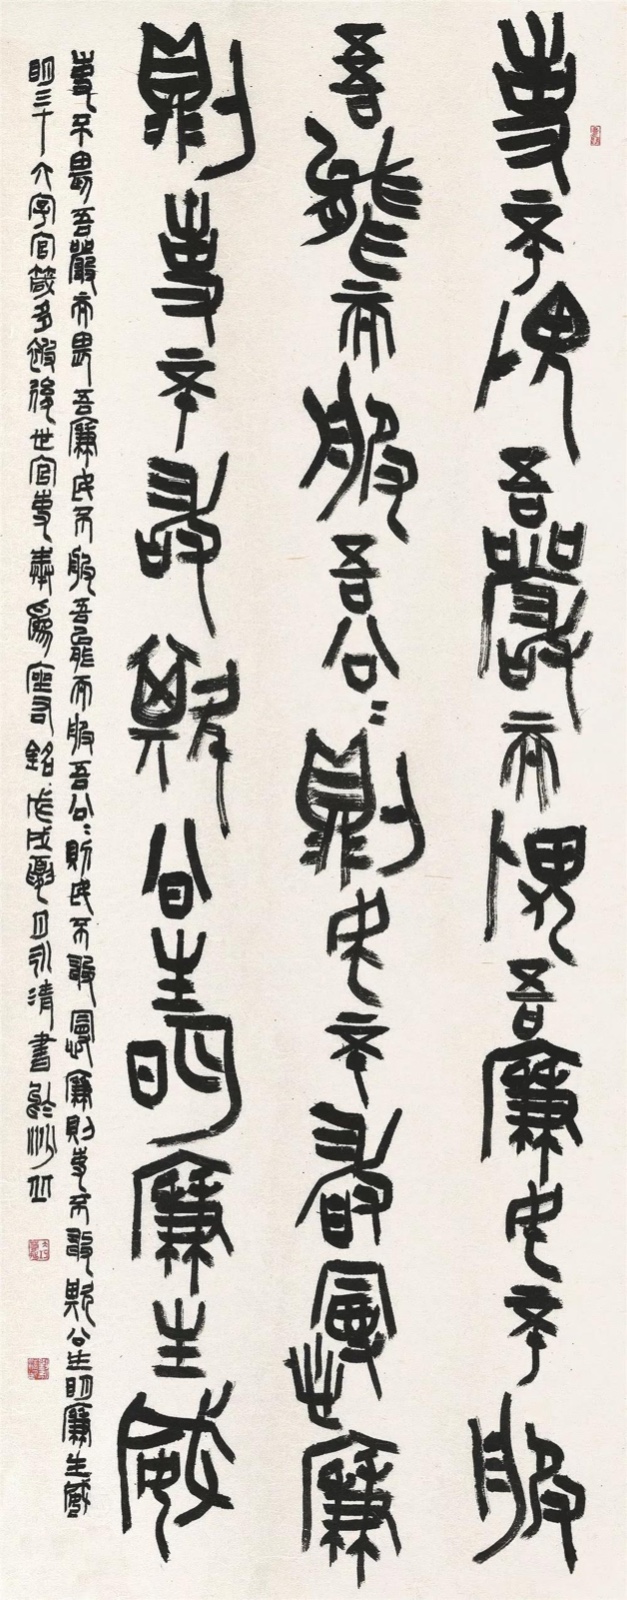 吏不畏吾嚴而畏吾廉民不服
吾能而服吾公〻則民不敢慢廉
則吏不敢欺公生明廉生威
吏不畏吾嚴而畏吾廉民不服吾能而服吾公〻則民不敢慢廉則吏不敢欺公生明廉生威
明三十六字官箴多被後世官吏奉為座右銘戊戌夏月永清書於